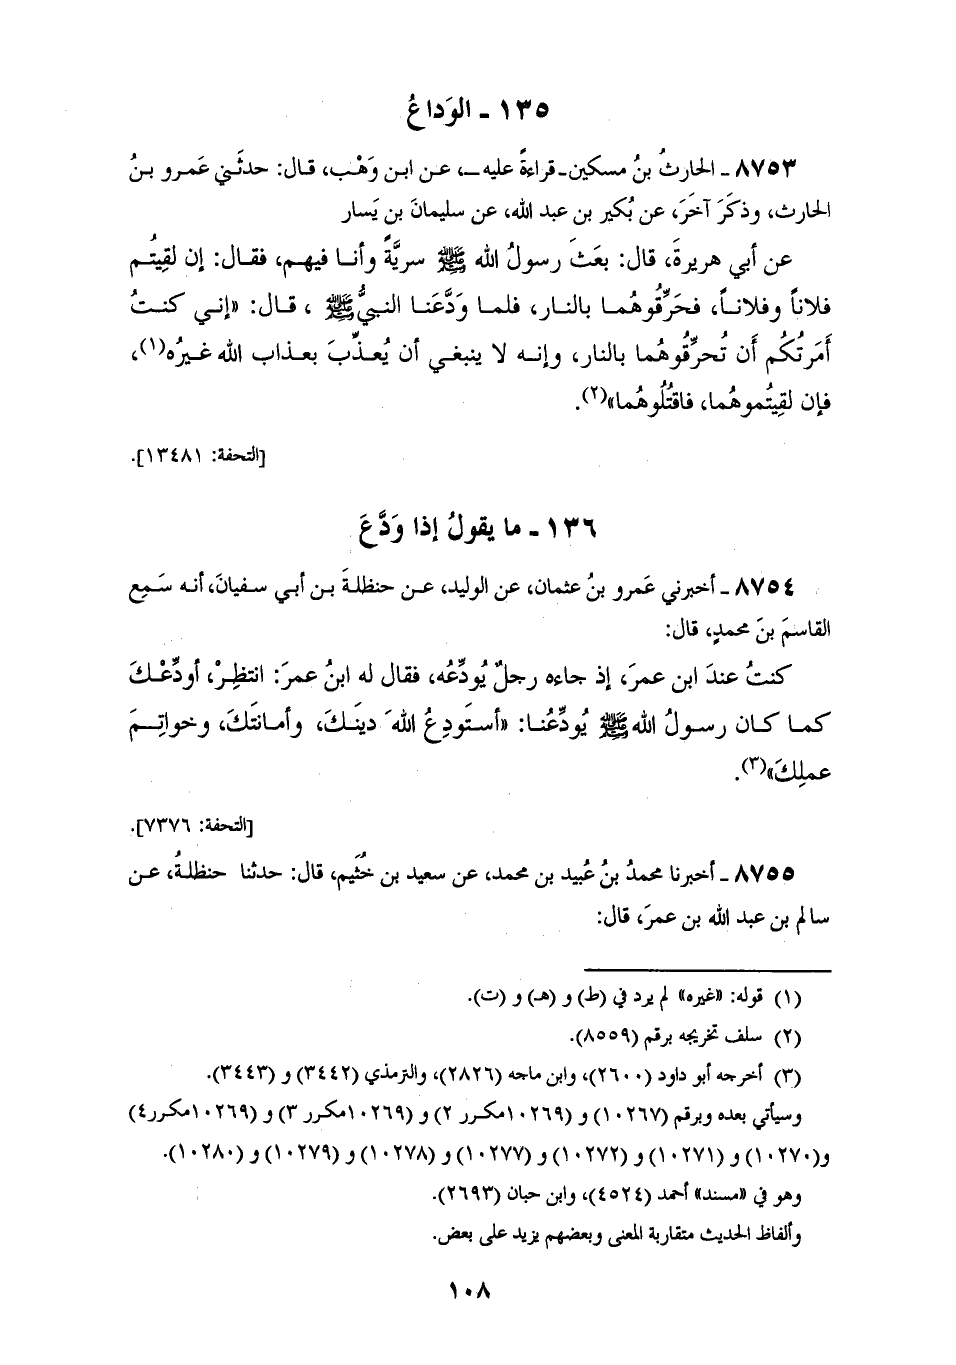 ١٣٥ ـ الوَداعُ
٨٧٥٣ ـ الحارثُ بنُ مسكين ـ قراءةً عليه ـ، عن ابن وَهْب، قال: حدثَني عَمرو بنُ
الحارث، وذكَرَ آخَرَ، عن بُكير بن عبد الله، عن سليمانَ بن يَسار
عن أبي هريرةَ، قال: بعَثَ رسولُ الله ﷺ سريَّةً وأنا فيهم، فقال: إن لقِيتُم
فلاناً وفلاناً، فحَرِّقُوهُما بالنار، فلما وَدَّعَنا النبيُّ ﷺ ، قال: «إني كنتُ
أمَرتُكُم أن تُحرِّقُوهُما بالنار، وإنه لا ينبغي أن يُعذِّبَ بعذاب الله غيرُه(١)،
فإن لقِيتُموهُما، فاقتُلُوهُما»(٢).
[التحفة: ١٣٤٨١].
١٣٦ ـ ما يقولُ إذا وَدَّعَ
٨٧٥٤ ـ أخبرني عَمرو بنُ عثمان، عن الوليد، عن حنظلةَ بن أبي سفيانَ، أنه سَمِع
القاسمَ بنَ محمدٍ، قال:
كنتُ عندَ ابن عمرَ، إذ جاءه رجلٌ يُودِّعُه، فقال له ابنُ عمرَ: انتظِرْ، أودِّعْكَ
كما كان رسولُ الله ﷺ يُودِّعُنا: «أستَودِعُ اللهَ دينَكَ، وأمانتَكَ، وخواتِمَ
عملِكَ»(٣).
[التحفة: ٧٣٧٦].
٨٧٥٥ ـ أخبرنا محمدُ بنُ عُبيد بن محمد، عن سعيد بن خُثَيم، قال: حدثنا حنظلةُ، عن
سالم بن عبد الله بن عمرَ، قال:
(١) قوله: «غيره» لم يرد في (ط) و (هـ) و (ت).
(٢) سلف تخريجه برقم (٨٥٥٩).
(٣) أخرجه أبو داود (٢٦٠٠)، وابن ماجه (٢٨٢٦)، والترمذي (٣٤٤٢) و (٣٤٤٣).
وسيأتي بعده وبرقم (١٠٢٦٧) و (١٠٢٦٩مكرر ٢) و (١٠٢٦٩مكرر ٣) و (١٠٢٦٩مكرر٤)
و(١٠٢٧٠) و (١٠٢٧١) و (١٠٢٧٢) و (١٠٢٧٧) و (١٠٢٧٨) و (١٠٢٧٩) و (١٠٢٨٠).
وهو في «مسند» أحمد (٤٥٢٤)، وابن حبان (٢٦٩٣).
وألفاظ الحديث متقاربة المعنى وبعضهم يزيد على بعض.
١٠٨